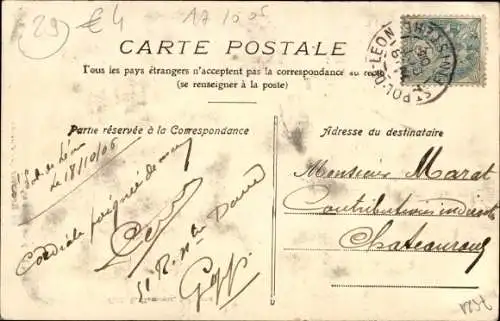 29
€4
17/10/05
CARTE POSTALE
Tous les pays étrangers n'acceptent pas la correspondance au recto
(se renseigner à la poste)
ST POL-DE-LEON
FINISTERE
Partie réservée à la Correspondance
Adresse du destinataire
St Pol de Léon
le 18/10/05
Cordiale poignée de main
Monsieur Marat
Contributions indirectes
Chateauroux